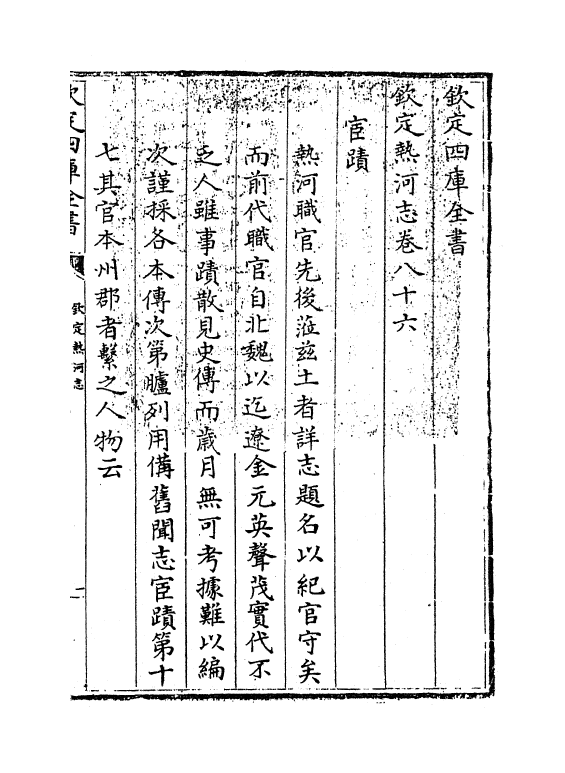 欽定四庫全書
欽定熱河志卷八十六
宦蹟
熱河職官先後涖兹土者詳志題名以紀官守矣
而前代職官自北魏以迄遼金元英聲茂實代不
乏人雖事蹟散見史傳而歲月無可考據難以編
次謹採各本傳次第臚列用備舊聞志宦蹟第十
七其官本州郡者繫之人物云
欽定四庫全書
欽定熱河志
一